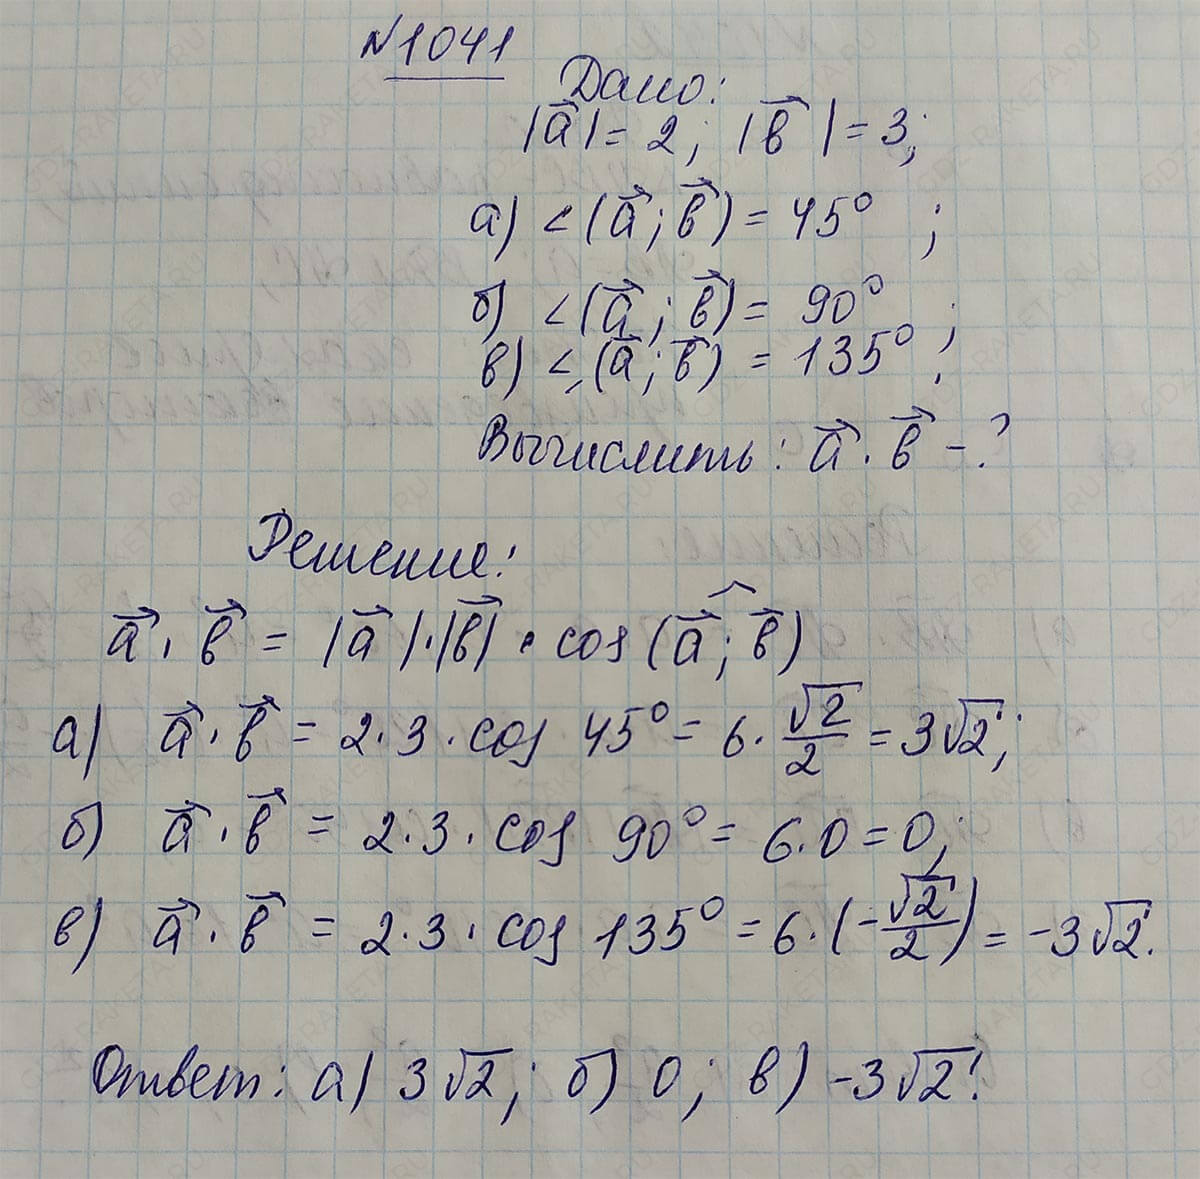 N1041
Дано:
|a⃗| = 2; |b⃗| = 3;
а) <(a⃗; b⃗) = 45° ;
б) <(a⃗; b⃗) = 90° ;
в) <(a⃗; b⃗) = 135° ;
Вычислить: a⃗ · b⃗ - ?
Решение:
a⃗ · b⃗ = |a⃗| · |b⃗| · cos (a⃗; b⃗)
а) a⃗ · b⃗ = 2 · 3 · cos 45° = 6 · √2/2 = 3√2;
б) a⃗ · b⃗ = 2 · 3 · cos 90° = 6 · 0 = 0;
в) a⃗ · b⃗ = 2 · 3 · cos 135° = 6 · (-√2/2) = -3√2.
Ответ: а) 3√2; б) 0; в) -3√2!